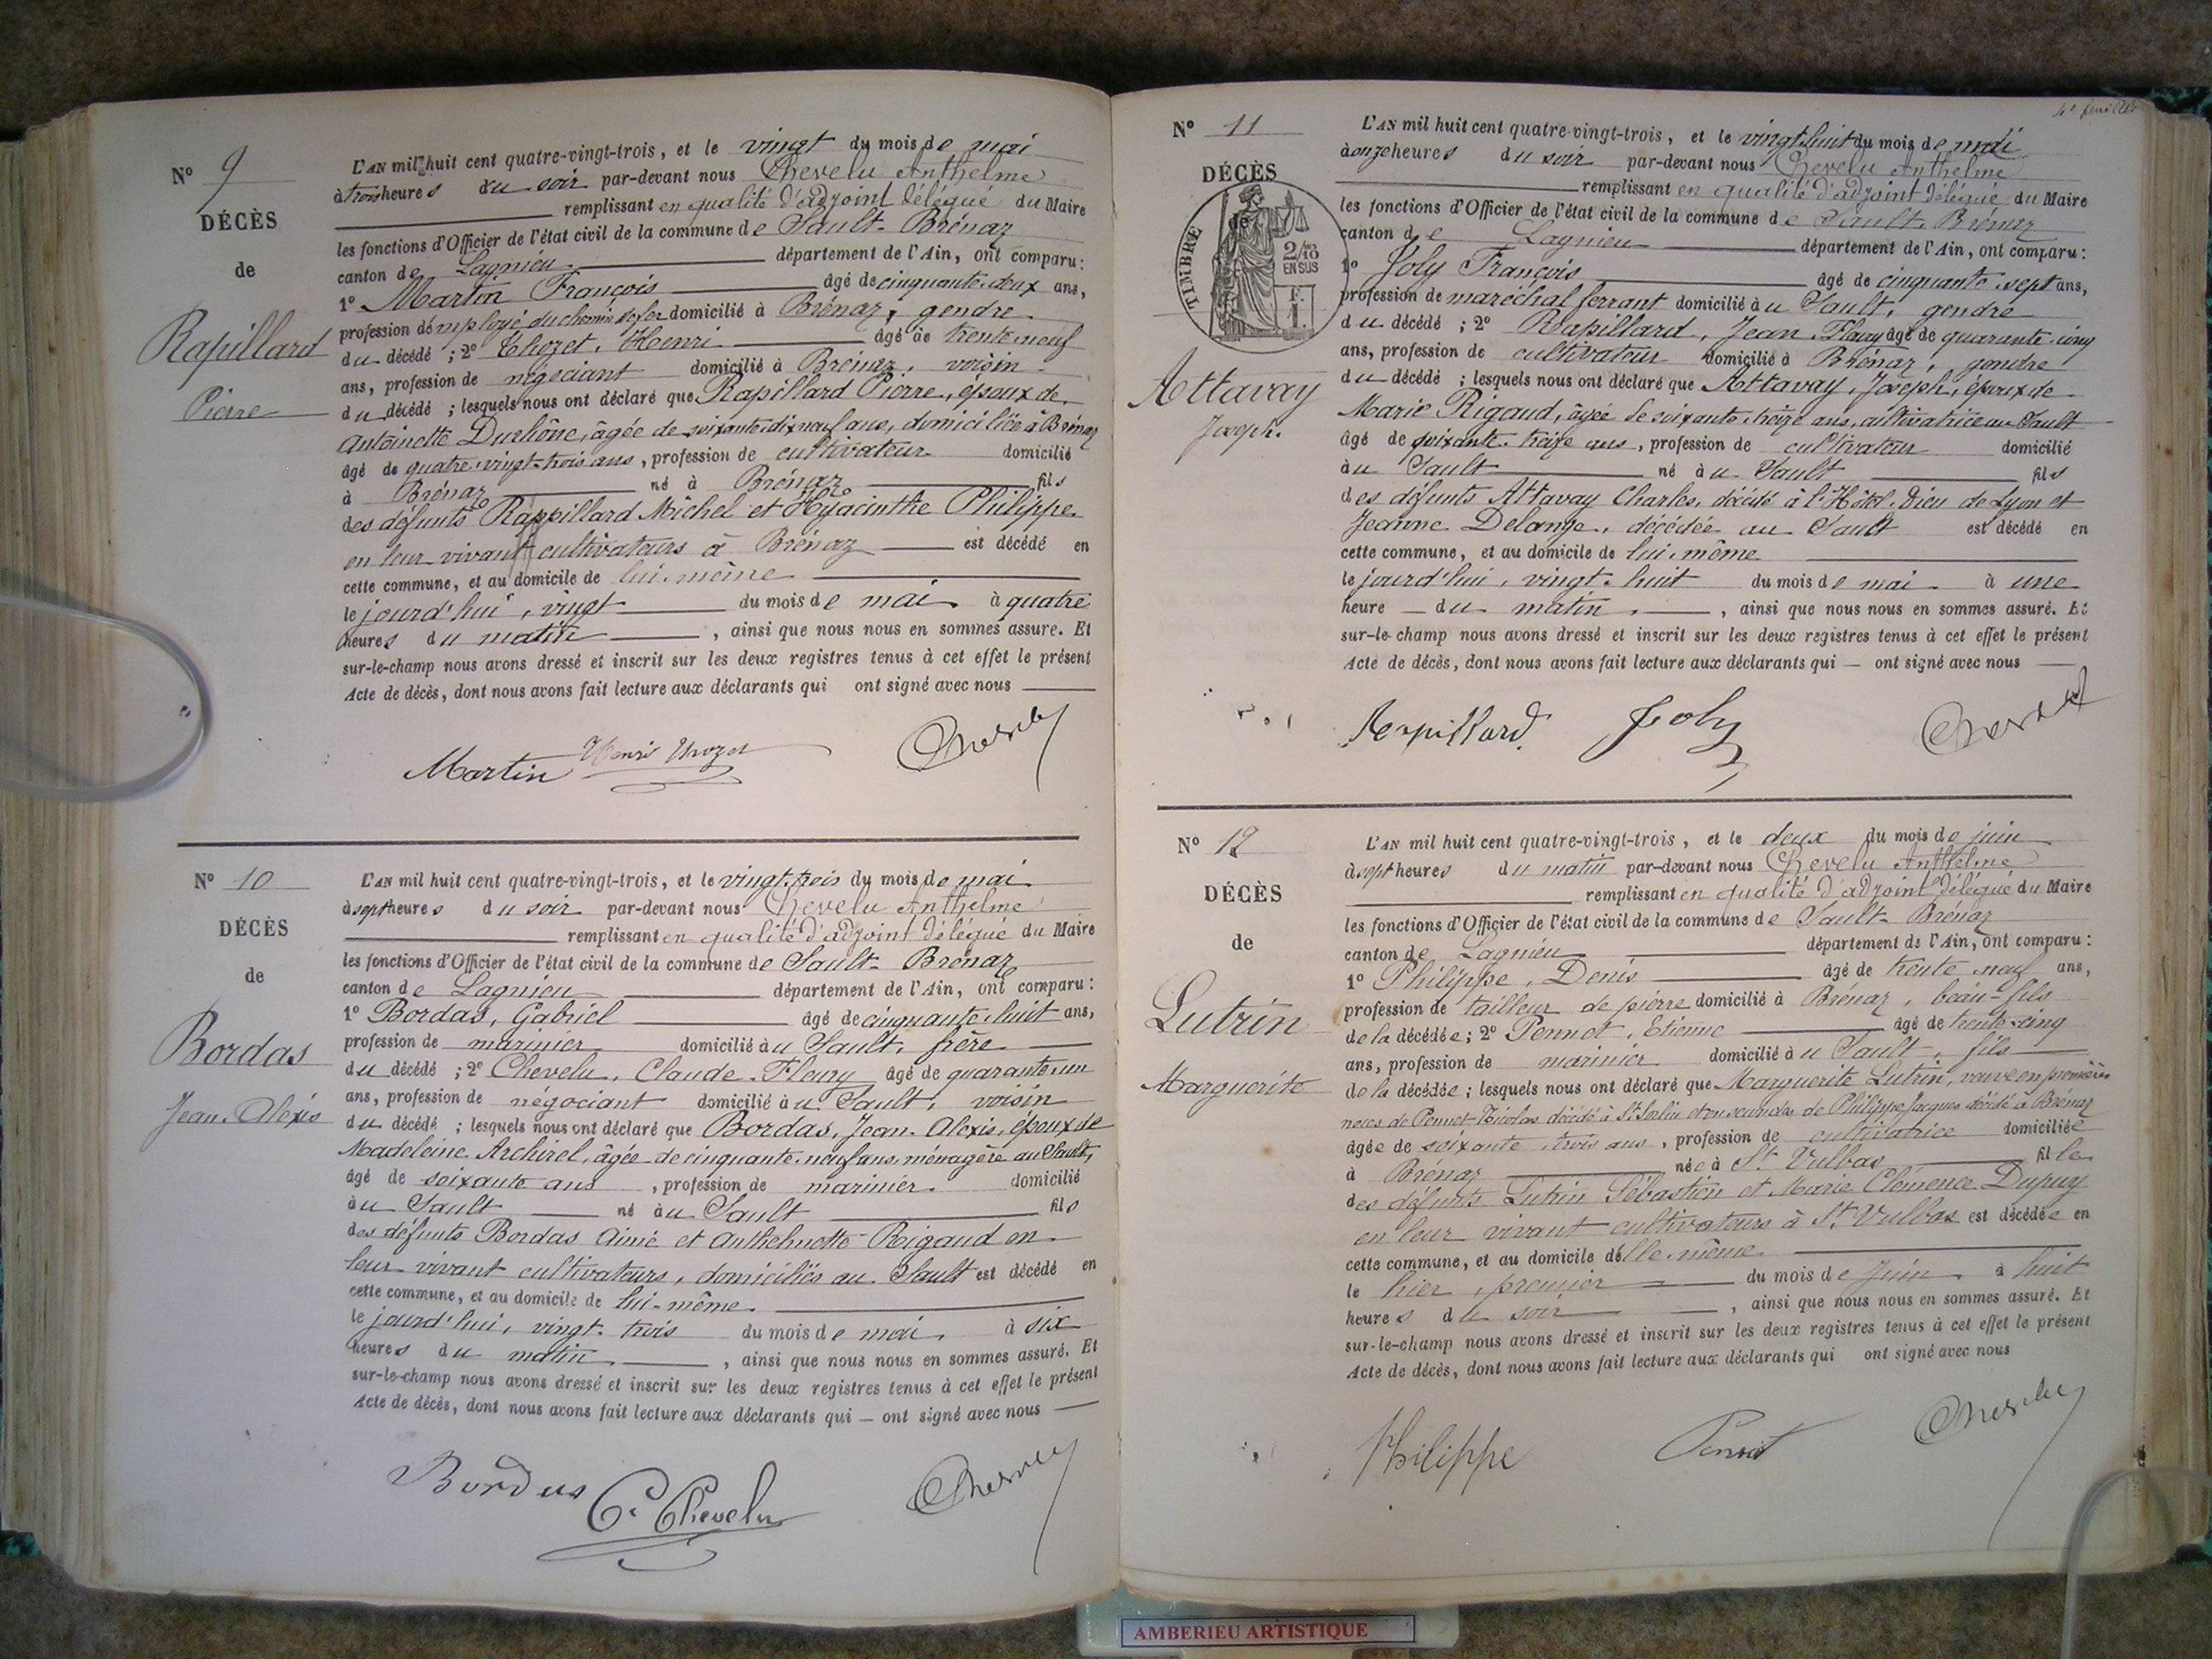 N° 9
DÉCÈS
de
Rapillard
Pierre
L'AN mil huit cent quatre-vingt-trois, et le vingt du mois de mai
à trois heures du soir par-devant nous Chevelu Anthelme
remplissant en qualité d'adjoint délégué du Maire
les fonctions d'Officier de l'état civil de la commune de Sault-Brénaz
canton de Lagnieu département de l'Ain, ont comparu :
1° Martin François âgé de cinquante-deux ans,
profession d'employé du chemin de fer domicilié à Brénaz, gendre
du décédé ; 2° Chozet, Henri âgé de trente-neuf
ans, profession de négociant domicilié à Brénaz, voisin
du décédé ; lesquels nous ont déclaré que Rapillard Pierre, époux de
Antoinette Durhône, âgée de soixante-dix neuf ans, domiciliée à Brénaz
âgé de quatre-vingt-trois ans, profession de cultivateur domicilié
à Brénaz né à Brénaz fils
des défunts Rappillard Michel et Hyacinthe Philippe
en leur vivant cultivateurs à Brénaz est décédé en
cette commune, et au domicile de lui-même
le jourd'hui, vingt du mois de mai à quatre
heures du matin, ainsi que nous nous en sommes assuré. Et
sur-le-champ nous avons dressé et inscrit sur les deux registres tenus à cet effet le présent
Acte de décès, dont nous avons fait lecture aux déclarants qui ont signé avec nous
Martin Henri Chozet Chevelu
N° 10
DÉCÈS
de
Bordas
Jean-Alexis
L'AN mil huit cent quatre-vingt-trois, et le vingt-trois du mois de mai
à sept heures du soir par-devant nous Chevelu Anthelme
remplissant en qualité d'adjoint délégué du Maire
les fonctions d'Officier de l'état civil de la commune de Sault-Brénaz
canton de Lagnieu département de l'Ain, ont comparu :
1° Bordas, Gabriel âgé de cinquante-huit ans,
profession de marinier domicilié au Sault, frère
du décédé ; 2° Chevelu, Claude-Fleury âgé de quarante-un
ans, profession de négociant domicilié au Sault, voisin
du décédé ; lesquels nous ont déclaré que Bordas, Jean-Alexis, époux de
Madeleine Archirel, âgée de cinquante-neuf ans, ménagère au Sault,
âgé de soixante ans, profession de marinier domicilié
au Sault né au Sault fils
des défunts Bordas Aimé et Anthelmette Rigaud en
leur vivant cultivateurs, domiciliés au Sault est décédé en
cette commune, et au domicile de lui-même
le jourd'hui, vingt-trois du mois de mai, à six
heures du matin, ainsi que nous nous en sommes assuré. Et
sur-le-champ nous avons dressé et inscrit sur les deux registres tenus à cet effet le présent
Acte de décès, dont nous avons fait lecture aux déclarants qui — ont signé avec nous —
Bordas C. Chevelu Chevelu
4e feuillet
N° 11
DÉCÈS
de
TIMBRE
2/10
EN SUS
F.
1.
Attavay
Joseph.
L'AN mil huit cent quatre-vingt-trois, et le vingt-huit du mois de mai
à onze heures du soir par-devant nous Chevelu Anthelme
remplissant en qualité d'adjoint délégué du Maire
les fonctions d'Officier de l'état civil de la commune de Sault-Brénaz
canton de Lagnieu département de l'Ain, ont comparu :
1° Joly François âgé de cinquante-sept ans,
profession de maréchal ferrant domicilié au Sault, gendre
du décédé ; 2° Rapillard, Jean Fleury âgé de quarante-cinq
ans, profession de cultivateur domicilié à Brénaz, gendre
du décédé ; lesquels nous ont déclaré que Attavay, Joseph, époux de
Marie Rigaud, âgée de soixante-treize ans, cultivatrice au Sault
âgé de soixante-treize ans, profession de cultivateur domicilié
au Sault né au Sault fils
des défunts Attavay Charles, décédé à l'Hôtel-Dieu de Lyon et
Jeanne Delange, décédée au Sault est décédé en
cette commune, et au domicile de lui-même
le jourd'hui, vingt-huit du mois de mai à une
heure — du matin, ainsi que nous nous en sommes assuré. Et
sur-le-champ nous avons dressé et inscrit sur les deux registres tenus à cet effet le présent
Acte de décès, dont nous avons fait lecture aux déclarants qui — ont signé avec nous —
Rapillard Joly Chevelu
N° 12
DÉCÈS
de
Lutrin
Marguerite
L'AN mil huit cent quatre-vingt-trois, et le deux du mois de juin
à sept heures du matin par-devant nous Chevelu Anthelme
remplissant en qualité d'adjoint délégué du Maire
les fonctions d'Officier de l'état civil de la commune de Sault-Brénaz
canton de Lagnieu département de l'Ain, ont comparu :
1° Philippe, Denis âgé de trente-neuf ans,
profession de tailleur de pierre domicilié à Brénaz, beau-fils
de la décédée ; 2° Pennet, Etienne âgé de trente-cinq
ans, profession de marinier domicilié au Sault, fils
de la décédée ; lesquels nous ont déclaré que Marguerite Lutrin, veuve en premières
noces de Pennet Nicolas décédé à St Sorlin et en secondes de Philippe Jacques décédé à Brénaz
âgée de soixante-trois ans, profession de cultivatrice domiciliée
à Brénaz née à St Vulbas fille
des défunts Lutrin Sébastien et Marie Clémence Dupuy
en leur vivant cultivateurs à St Vulbas est décédée en
cette commune, et au domicile d'elle-même
le hier, premier du mois de Juin à huit
heures du soir, ainsi que nous nous en sommes assuré. Et
sur-le-champ nous avons dressé et inscrit sur les deux registres tenus à cet effet le présent
Acte de décès, dont nous avons fait lecture aux déclarants qui ont signé avec nous
Philippe Pennet Chevelu
AMBERIEU ARTISTIQUE